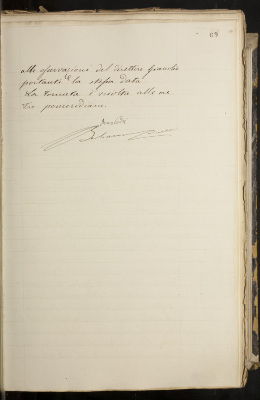 69
alle osservazioni del direttore
portanti la stessa data
La tornata è sciolta alle ore
tre pomeridiane.